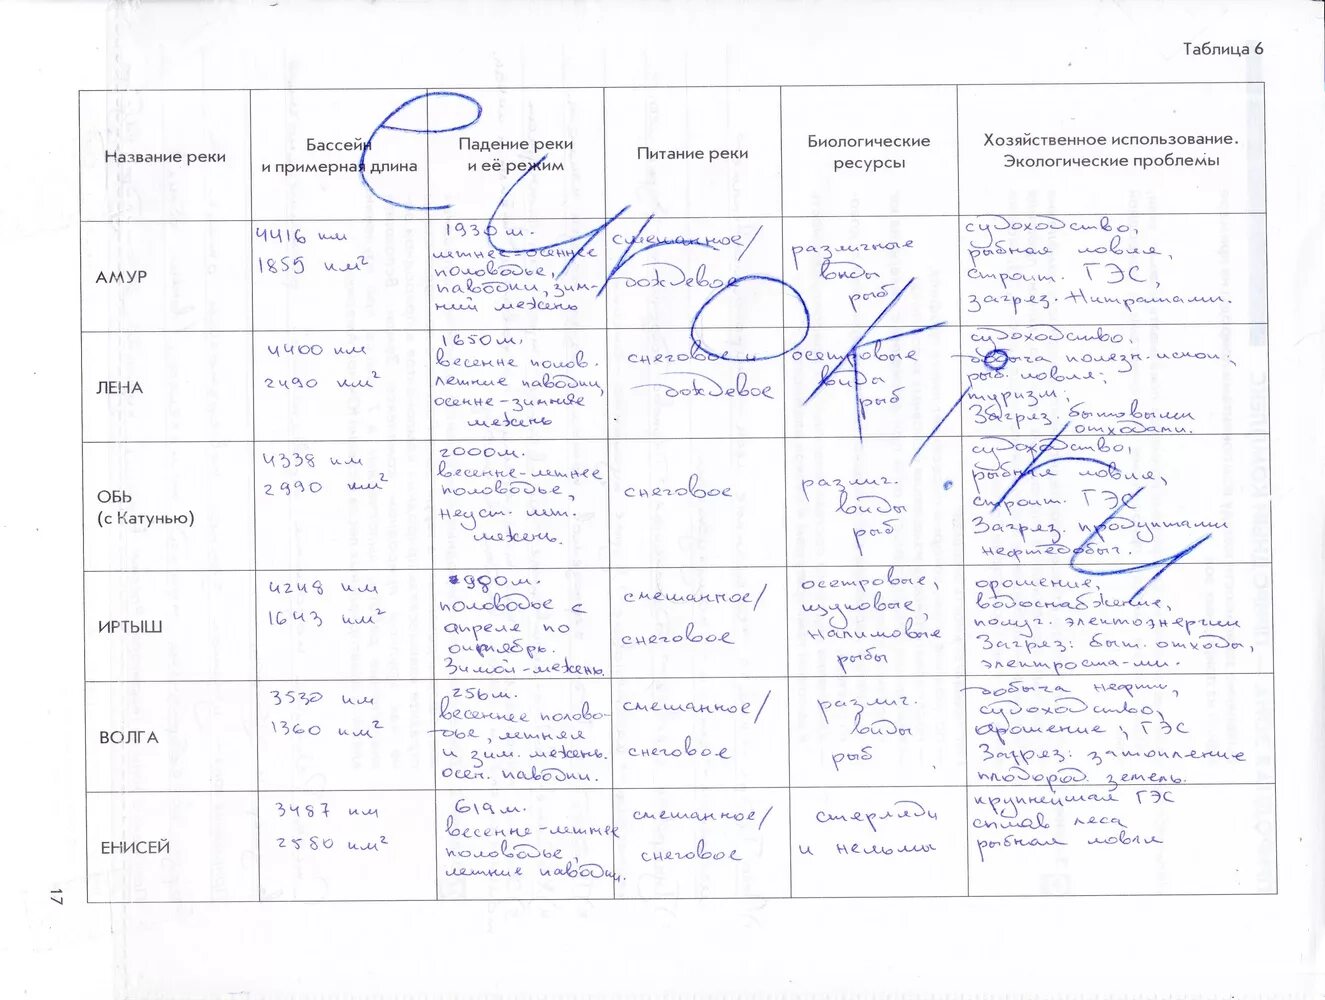 Таблица 6
Название реки
Бассейн
и примерная длина
Падение реки
и её режим
Питание реки
Биологические
ресурсы
Хозяйственное использование.
Экологические проблемы
АМУР
4416 км
1855 км²
1930 м.
летнее-осеннее
половодье,
паводки, зим-
ний межень
смешанное/
дождевое
различные
виды
рыб
судоходство,
рыбная ловля,
строит. ГЭС,
загряз. Нитратами.
ЛЕНА
4400 км
2490 км²
1650 м.
весенне полов.
летние паводки,
осенне-зимняя
межень
снеговое и
дождевое
осетровые
вида
рыб
судоходство.
добыча полезн. ископ;
рыб. ловля;
туризм,
Загряз. бытовыми
отходами.
ОБЬ
(с Катунью)
4338 км
2990 км²
2000 м.
весенне-летнее
половодье,
неуст. лет.
межень.
снеговое
различ.
виды
рыб
судоходство,
рыбная ловля,
строит. ГЭС
Загряз. продуктами
нефтедобыч.
ИРТЫШ
4248 км
1643 км²
980 м.
половодье с
апреля по
октябрь.
Зимой-межень.
смешанное/
снеговое
осетровые,
щуковые,
налимовые
рыбы
орошение,
водоснабжение,
получ. электоэнергии
Загряз: быт. отходы,
электроста-ми.
ВОЛГА
3530 км
1360 км²
256 м.
весеннее полово-
дье, летняя
и зим. межень.
осен. паводки.
смешанное/
снеговое
различ.
виды
рыб
добыча нефти,
судоходство,
орошение, ГЭС
Загряз: затопление
плодород. земель.
ЕНИСЕЙ
3487 км
2580 км²
619 м.
весенне-летнее
половодье,
летние паводки.
смешанное/
снеговое
стерляди
и нельмы
крупнейшая ГЭС
сплав леса
рыбная ловля
17
еуроки.ру